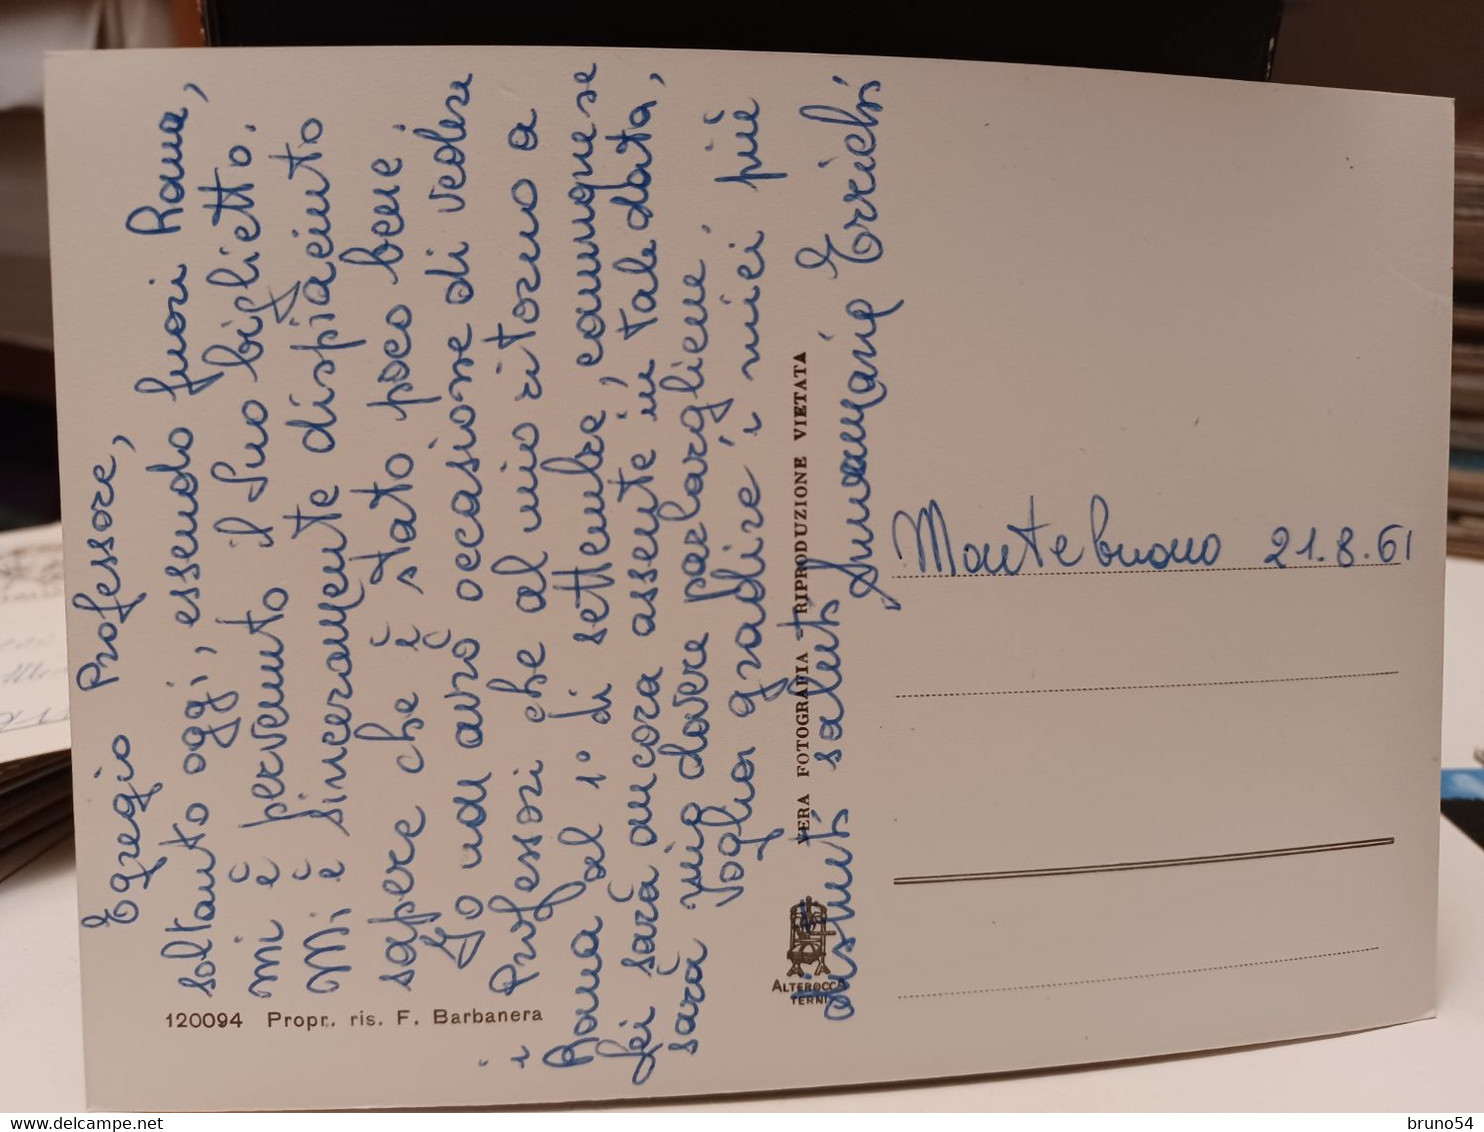 Egregio Professore,
soltanto oggi, essendo fuori Roma,
mi è pervenuto il Suo biglietto.
Mi è sinceramente dispiaciuto
sapere che è stato poco bene.
Io non avrò occasione di vedere
i Professori che al mio ritorno a
Roma al 1° di settembre, comunque se
Lei sarà ancora assente in tale data,
sarà mio dovere parlargliene.
Voglia gradire i miei più
distinti saluti
Annamaria Errichi
Montebuono 21.8.61
VERA FOTOGRAFIA RIPRODUZIONE VIETATA
ALTEROCCA
TERNI
120094 Propr. ris. F. Barbanera
delcampe.net
bruno54